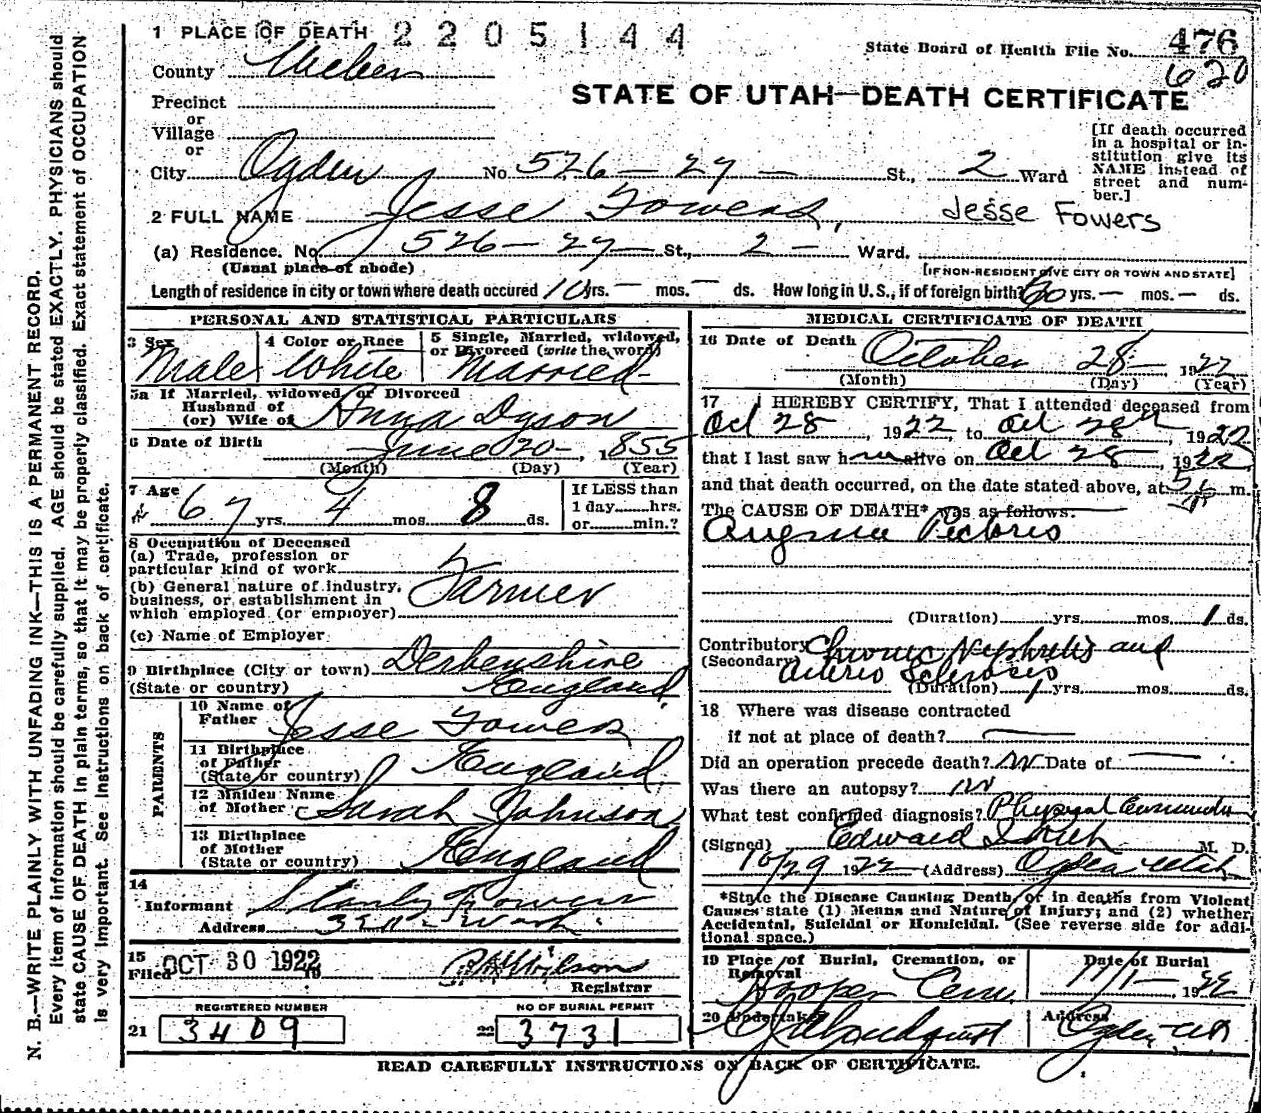 N. B.—WRITE PLAINLY WITH UNFADING INK—THIS IS A PERMANENT RECORD.
Every item of information should be carefully supplied. AGE should be stated EXACTLY. PHYSICIANS should
state CAUSE OF DEATH in plain terms, so that it may be properly classified. Exact statement of OCCUPATION
is very important. See instructions on back of certificate.
1 PLACE OF DEATH 2205144
State Board of Health File No. 476
620
County Weber
STATE OF UTAH—DEATH CERTIFICATE
Precinct
or
Village
or
City Ogden No. 526 - 27 - St., 2 Ward
[If death occurred
in a hospital or in-
stitution give its
NAME instead of
street and num-
ber.]
2 FULL NAME Jesse Fowers, Jesse Fowers
(a) Residence. No. 526 - 27 - St., 2 - Ward.
(Usual place of abode)
[IF NON-RESIDENT GIVE CITY OR TOWN AND STATE]
Length of residence in city or town where death occured 10 yrs. — mos. — ds. How long in U.S., if of foreign birth? 60 yrs. — mos. — ds.
PERSONAL AND STATISTICAL PARTICULARS
3 Sex
Male
4 Color or Race
White
5 Single, Married, widowed,
or Divorced (write the word)
Married
5a If Married, widowed, or Divorced
Husband of
(or) Wife of Anna Dyson
6 Date of Birth June 20 -, 1855
(Month) (Day) (Year)
7 Age
67 yrs. 4 mos. 8 ds.
If LESS than
1 day......hrs.
or......min.?
8 Occupation of Deceased
(a) Trade, profession or
particular kind of work
(b) General nature of industry,
business, or establishment in
which employed (or employer)
Farmer
(c) Name of Employer
9 Birthplace (City or town) Derbenshire
(State or country) England
PARENTS
10 Name of
Father Jesse Fowers
11 Birthplace
of Father
(State or country) England
12 Maiden Name
of Mother Sarah Johnson
13 Birthplace
of Mother
(State or country) England
14
Informant Stanley Fowers
Address
15
Filed OCT 30 1922 Wilson
Registrar
REGISTERED NUMBER
21 3409
NO OF BURIAL PERMIT
22 3731
MEDICAL CERTIFICATE OF DEATH
16 Date of Death October 28 - 1922
(Month) (Day) (Year)
17 I HEREBY CERTIFY, That I attended deceased from
Oct 28, 1922, to Oct 28th 1922
that I last saw him alive on Oct 28, 1922
and that death occurred, on the date stated above, at m.
The CAUSE OF DEATH* was as follows:
Angina Pectoris
(Duration) yrs. mos. 1 ds.
Contributory Chronic Nephritis and
(Secondary) Arterio Sclerosis
(Duration) 1 yrs. mos. ds.
18 Where was disease contracted
if not at place of death? —
Did an operation precede death? no Date of —
Was there an autopsy? no
What test confirmed diagnosis? Physical Examination
(Signed) Edward M. D.
10/29 1922 (Address) Ogden Utah
*State the Disease Causing Death, or in deaths from Violent
Causes state (1) Means and Nature of Injury; and (2) whether
Accidental, Suicidal or Homicidal. (See reverse side for addi-
tional space.)
19 Place of Burial, Cremation, or
Removal
Hooper Cem.
Date of Burial
11/1 - 1922
20 Undertaker
Address
Ogden Ut
READ CAREFULLY INSTRUCTIONS ON BACK OF CERTIFICATE.